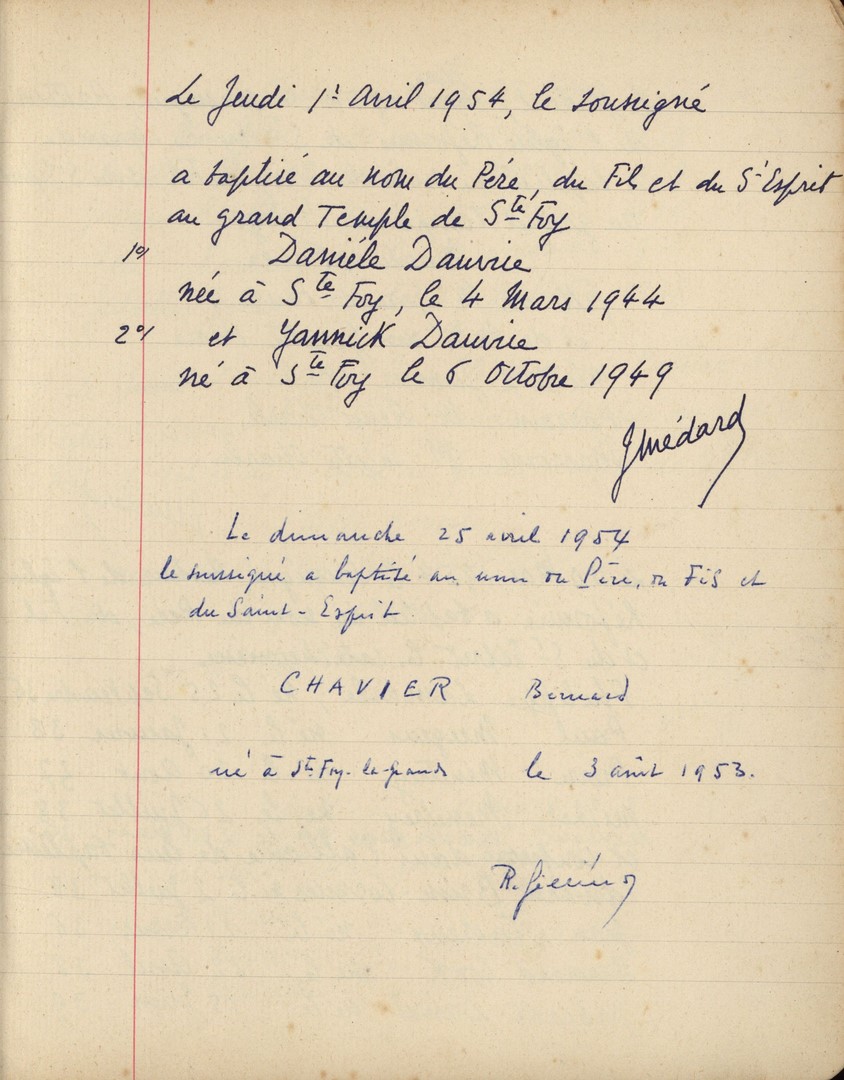 Le Jeudi 1er Avril 1954, le soussigné
a baptisé au nom du Père, du Fils et du St Esprit
au grand Temple de Ste Foy
1°/ Danièle Dauvrie
née à Ste Foy, le 4 Mars 1944
2°/ et Yannick Dauvrie
né à Ste Foy le 6 Octobre 1949
J Médard
Le dimanche 25 avril 1954
le soussigné a baptisé au nom du Père, du Fils et
du Saint-Esprit
CHAVIER Bernard
né à Ste Foy-la-Grande le 3 août 1953.
R.